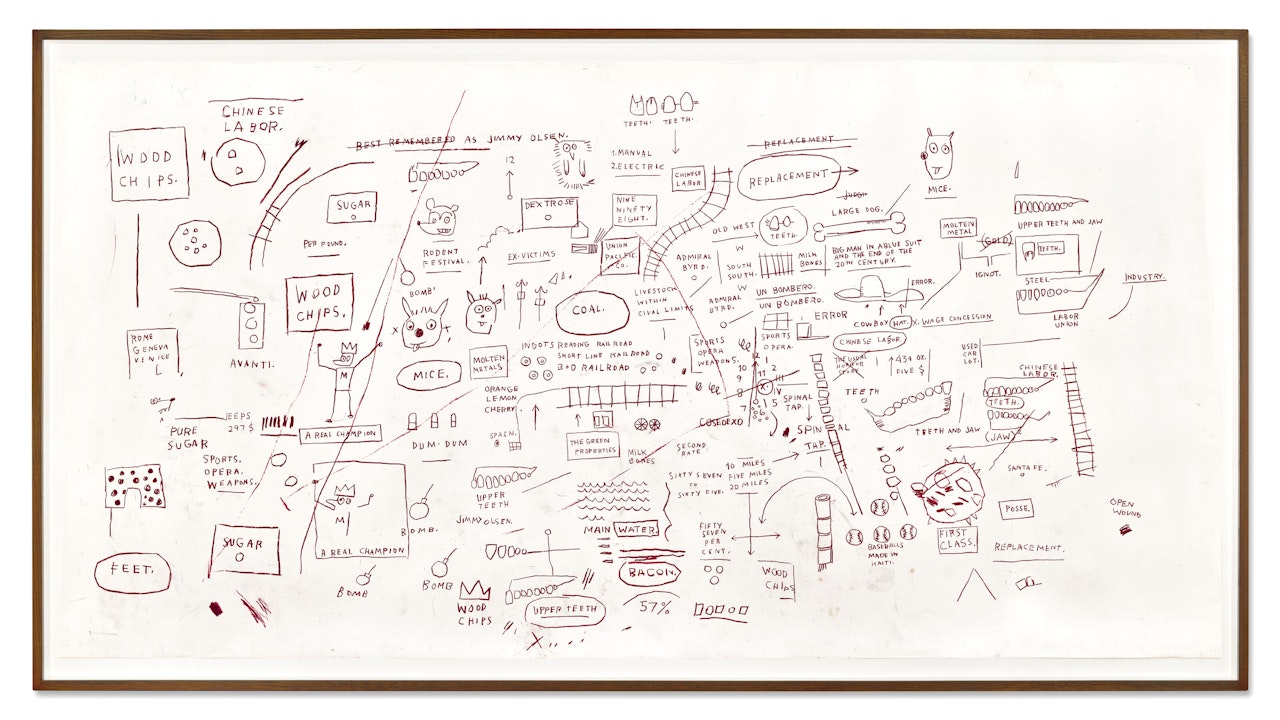 CHINESE
LABOR.
WOOD
CHIPS.
BEST REMEMBERED AS JIMMY OLSEN.
TEETH. TEETH.
1. MANUAL
2. ELECTRIC
CHINESE
LABOR
REPLACEMENT
REPLACEMENT
MICE.
12
SUGAR
PER POUND.
RODENT
FESTIVAL.
DEXTROSE
EX-VICTIMS
NINE
NINETY
EIGHT.
UNION
PACIFIC
CO.
OLD WEST
TEETH.
LARGE DOG.
MILK
BONES
BIG MAN IN A BLUE SUIT
AND THE END OF THE
20TH CENTURY.
MOLTEN
METAL
(GOLD)
IGNOT.
UPPER TEETH AND JAW
TEETH.
STEEL
LABOR
UNION
INDUSTRY.
WOOD
CHIPS.
BOMB!
X
COAL.
LIVESTOCK
WITHIN
CIVAL LIMITS
ADMIRAL
BYRD.
W
SOUTH
SOUTH.
W
ADMIRAL
BYRD.
UN BOMBERO.
UN BOMBERO.
ERROR
SPORTS
OPERA.
ERROR.
COWBOY HAT. X. WAGE CONCESSION
CHINESE LABOR.
ROME
GENEVA
VENICE
L,
AVANTI.
M
A REAL CHAMPION
MICE.
MOLTEN
METALS
INGOTS
READING RAILROAD
SHORT LINE RAILROAD
B+O RAILROAD
SPORTS
OPERA
WEAPONS.
12
10
11
2
9
X
III
8
IV
7
6
5
434 OZ.
FIVE $
USED
CAR
LOT.
CHINESE
LABOR.
(TEETH.)
(JAW)
TEETH
TEETH AND JAW
ORANGE
LEMON
CHERRY.
SPAIN.
THE GREEN
PROPERTIES
MILK
BONES
SECOND
RATE
SPINAL
TAP.
SPINAL
TAP.
JEEPS
297 $
PURE
SUGAR
SPORTS.
OPERA.
WEAPONS.
DUM-DUM
UPPER
TEETH
JIMMY OLSEN.
SIXTY SEVEN
TO
SIXTY FIVE.
10 MILES
FIVE MILES
20 MILES
SANTA FE.
POSSE.
OPEN
WOUND
FEET.
SUGAR
M
A REAL CHAMPION
BOMB.
BOMB
BOMB
WOOD
CHIPS
UPPER TEETH
MAIN WATER.
BACON.
57%
FIFTY
SEVEN
PER
CENT.
WOOD
CHIPS
BASEBALLS
MADE IN
HAITI.
FIRST
CLASS.
REPLACEMENT.
X